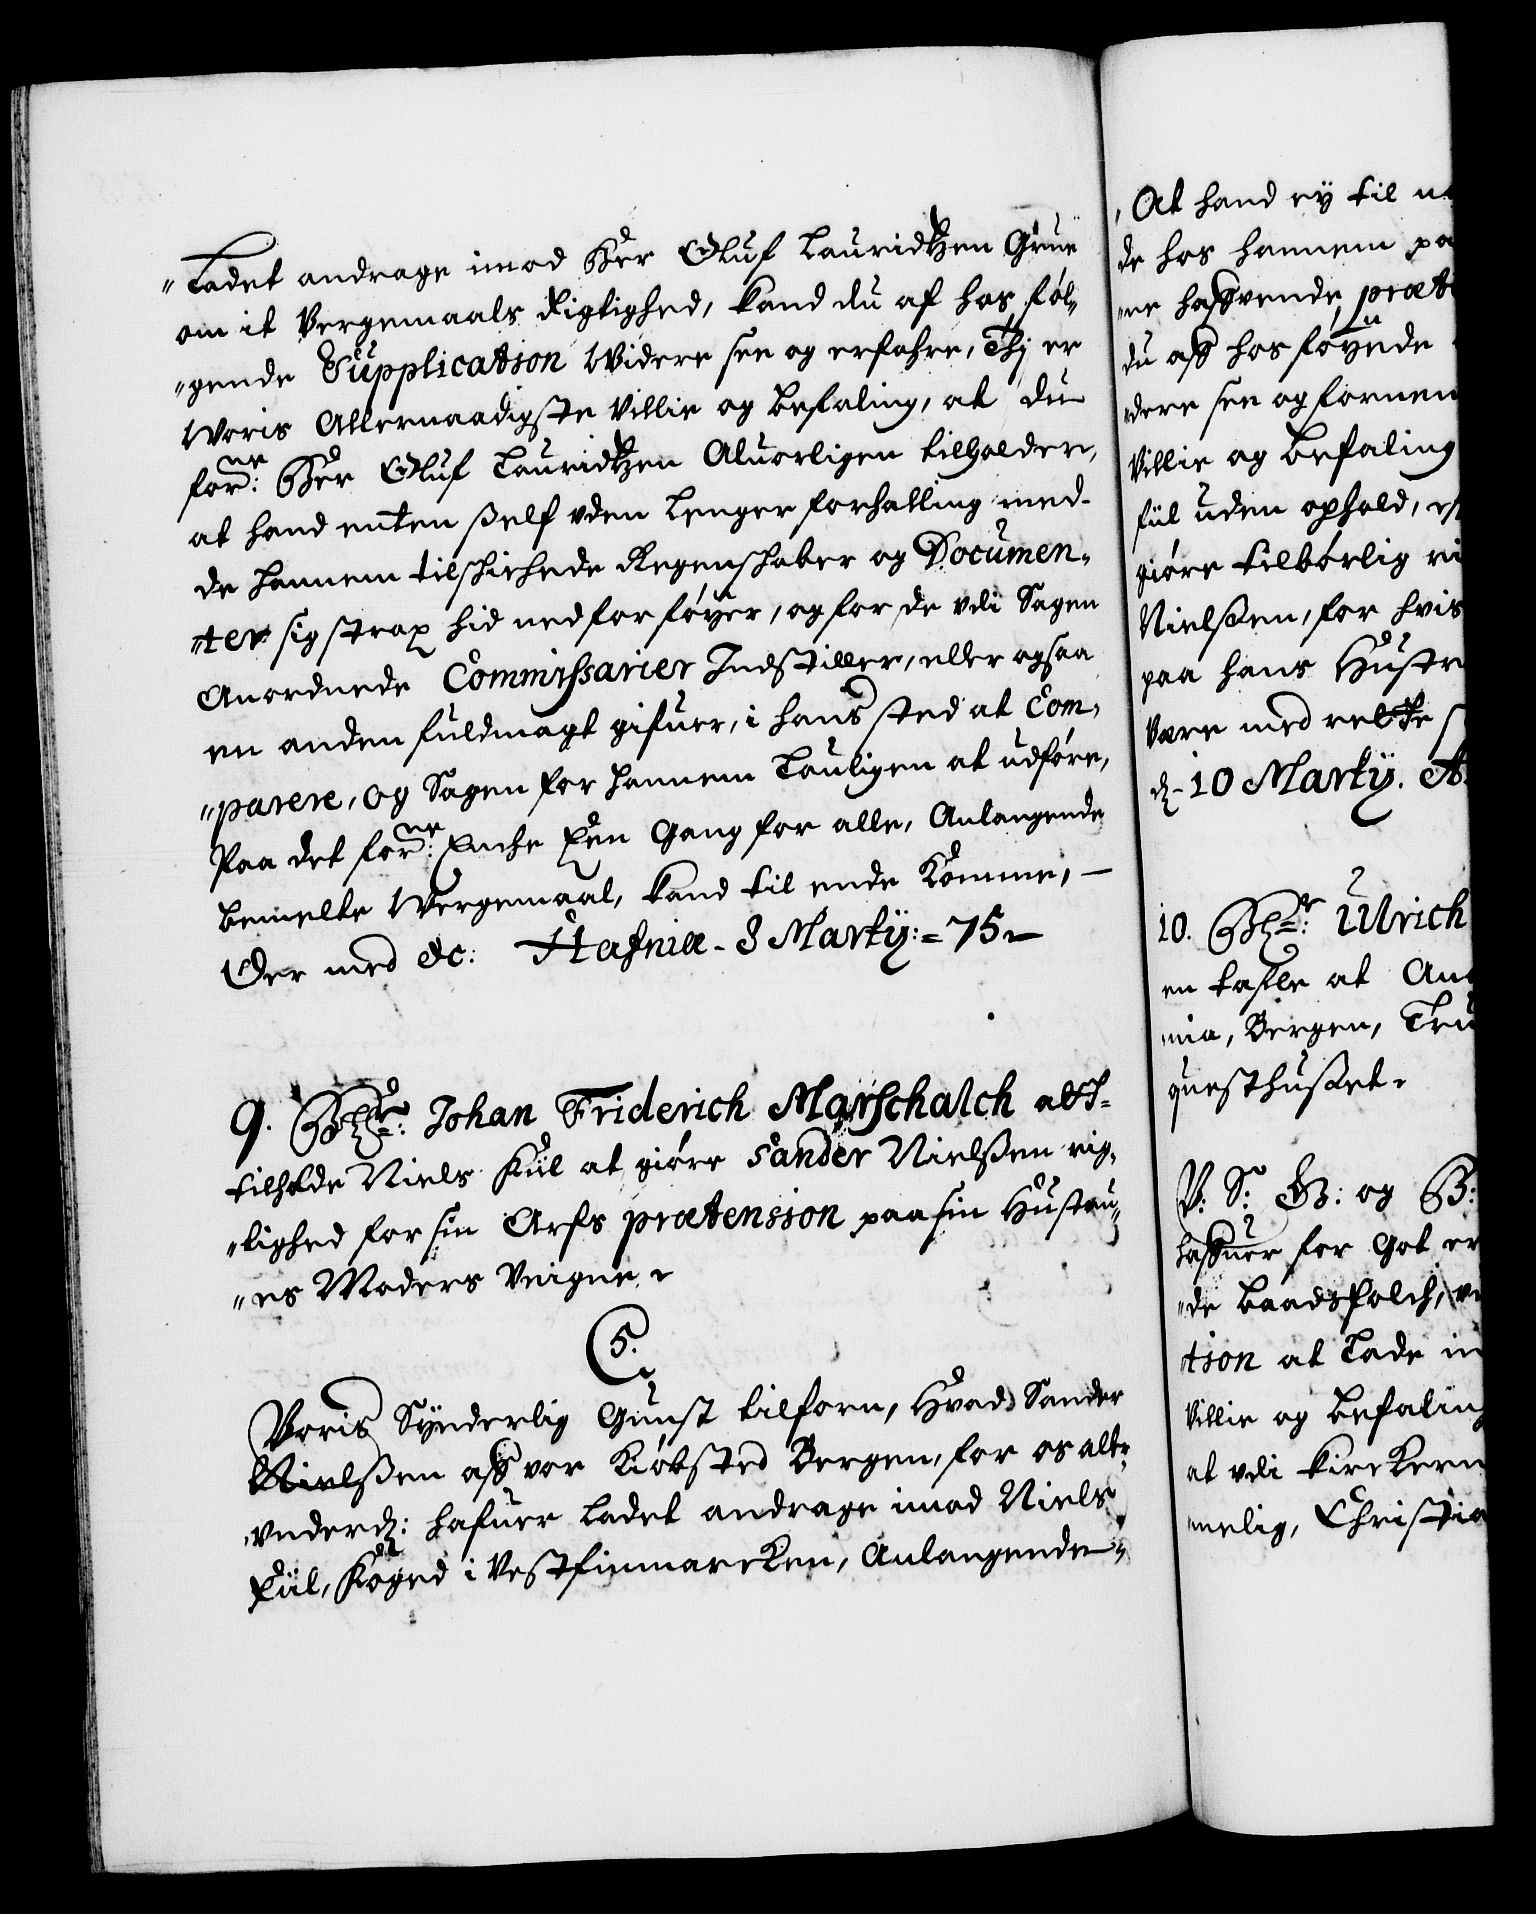 "Ladet andrage imod Her Oluf Lauridtzen Grue
om it Vergemaals Rigtighed, kand du af hos føl-
"gende Supplication Widere see og erfahre, Thj er
Woris Allernaadigste Villie og befaling, at du
forne: Her Oluf Lauridtzen Aluorligen tilholder,
at hand enten self vden lenger forhalling med-
de hannem tilschichede Regenschaber og Documen-
"ter sig strax hid ned forføyer, og for de vdi Sagen
Anordnede Commissarier Indstiller, eller ogsaa
en anden fuldmagt gifuer, i hans sted at Com-
"parere, og Sagen for hannem Lauligen at udføre,
Paa det forne: Enche Een Gang for alle, Anlangende
bemelte Wergemaal, kand til ende Komme, -
Der med etc: Hafniæ - 8 Martij: = 75 -
9. Johan Friderich Marschalch att
tilholde Niels Kiil at giøre Sander Nielssen rig-
"tighed for sin Arfs prætension paa sin Hustru-
"es Moders Veigne.
C5.
Voris Synderlig Gunst tilforn, Hvad Sander
Nielssen aff vor Kiøbsted Bergen, for os aller-
underd: hafuer ladet andrage imod Niels
Kiil, Foged i Vestfinmarcken, Anlangende -
At hand ey til
de hos hannem
"ne haffvende, præt
du aff hos føyede
"dere see og fornem
Villie og befaling
fiil uden ophold,
giøre tilbørlig ri
Nielssen, for hvis
paa hans Hustr
være med rette
d- 10 Martij. A
10. Ulrich
en taffle at
nia, Bergen, Tru
questhuset.
V: S: G: og B:
haffuer for Got er
"de baadsfolch,
tion at Lade in
Villie og befaling
at vdi kirckern
"nelig, Christia